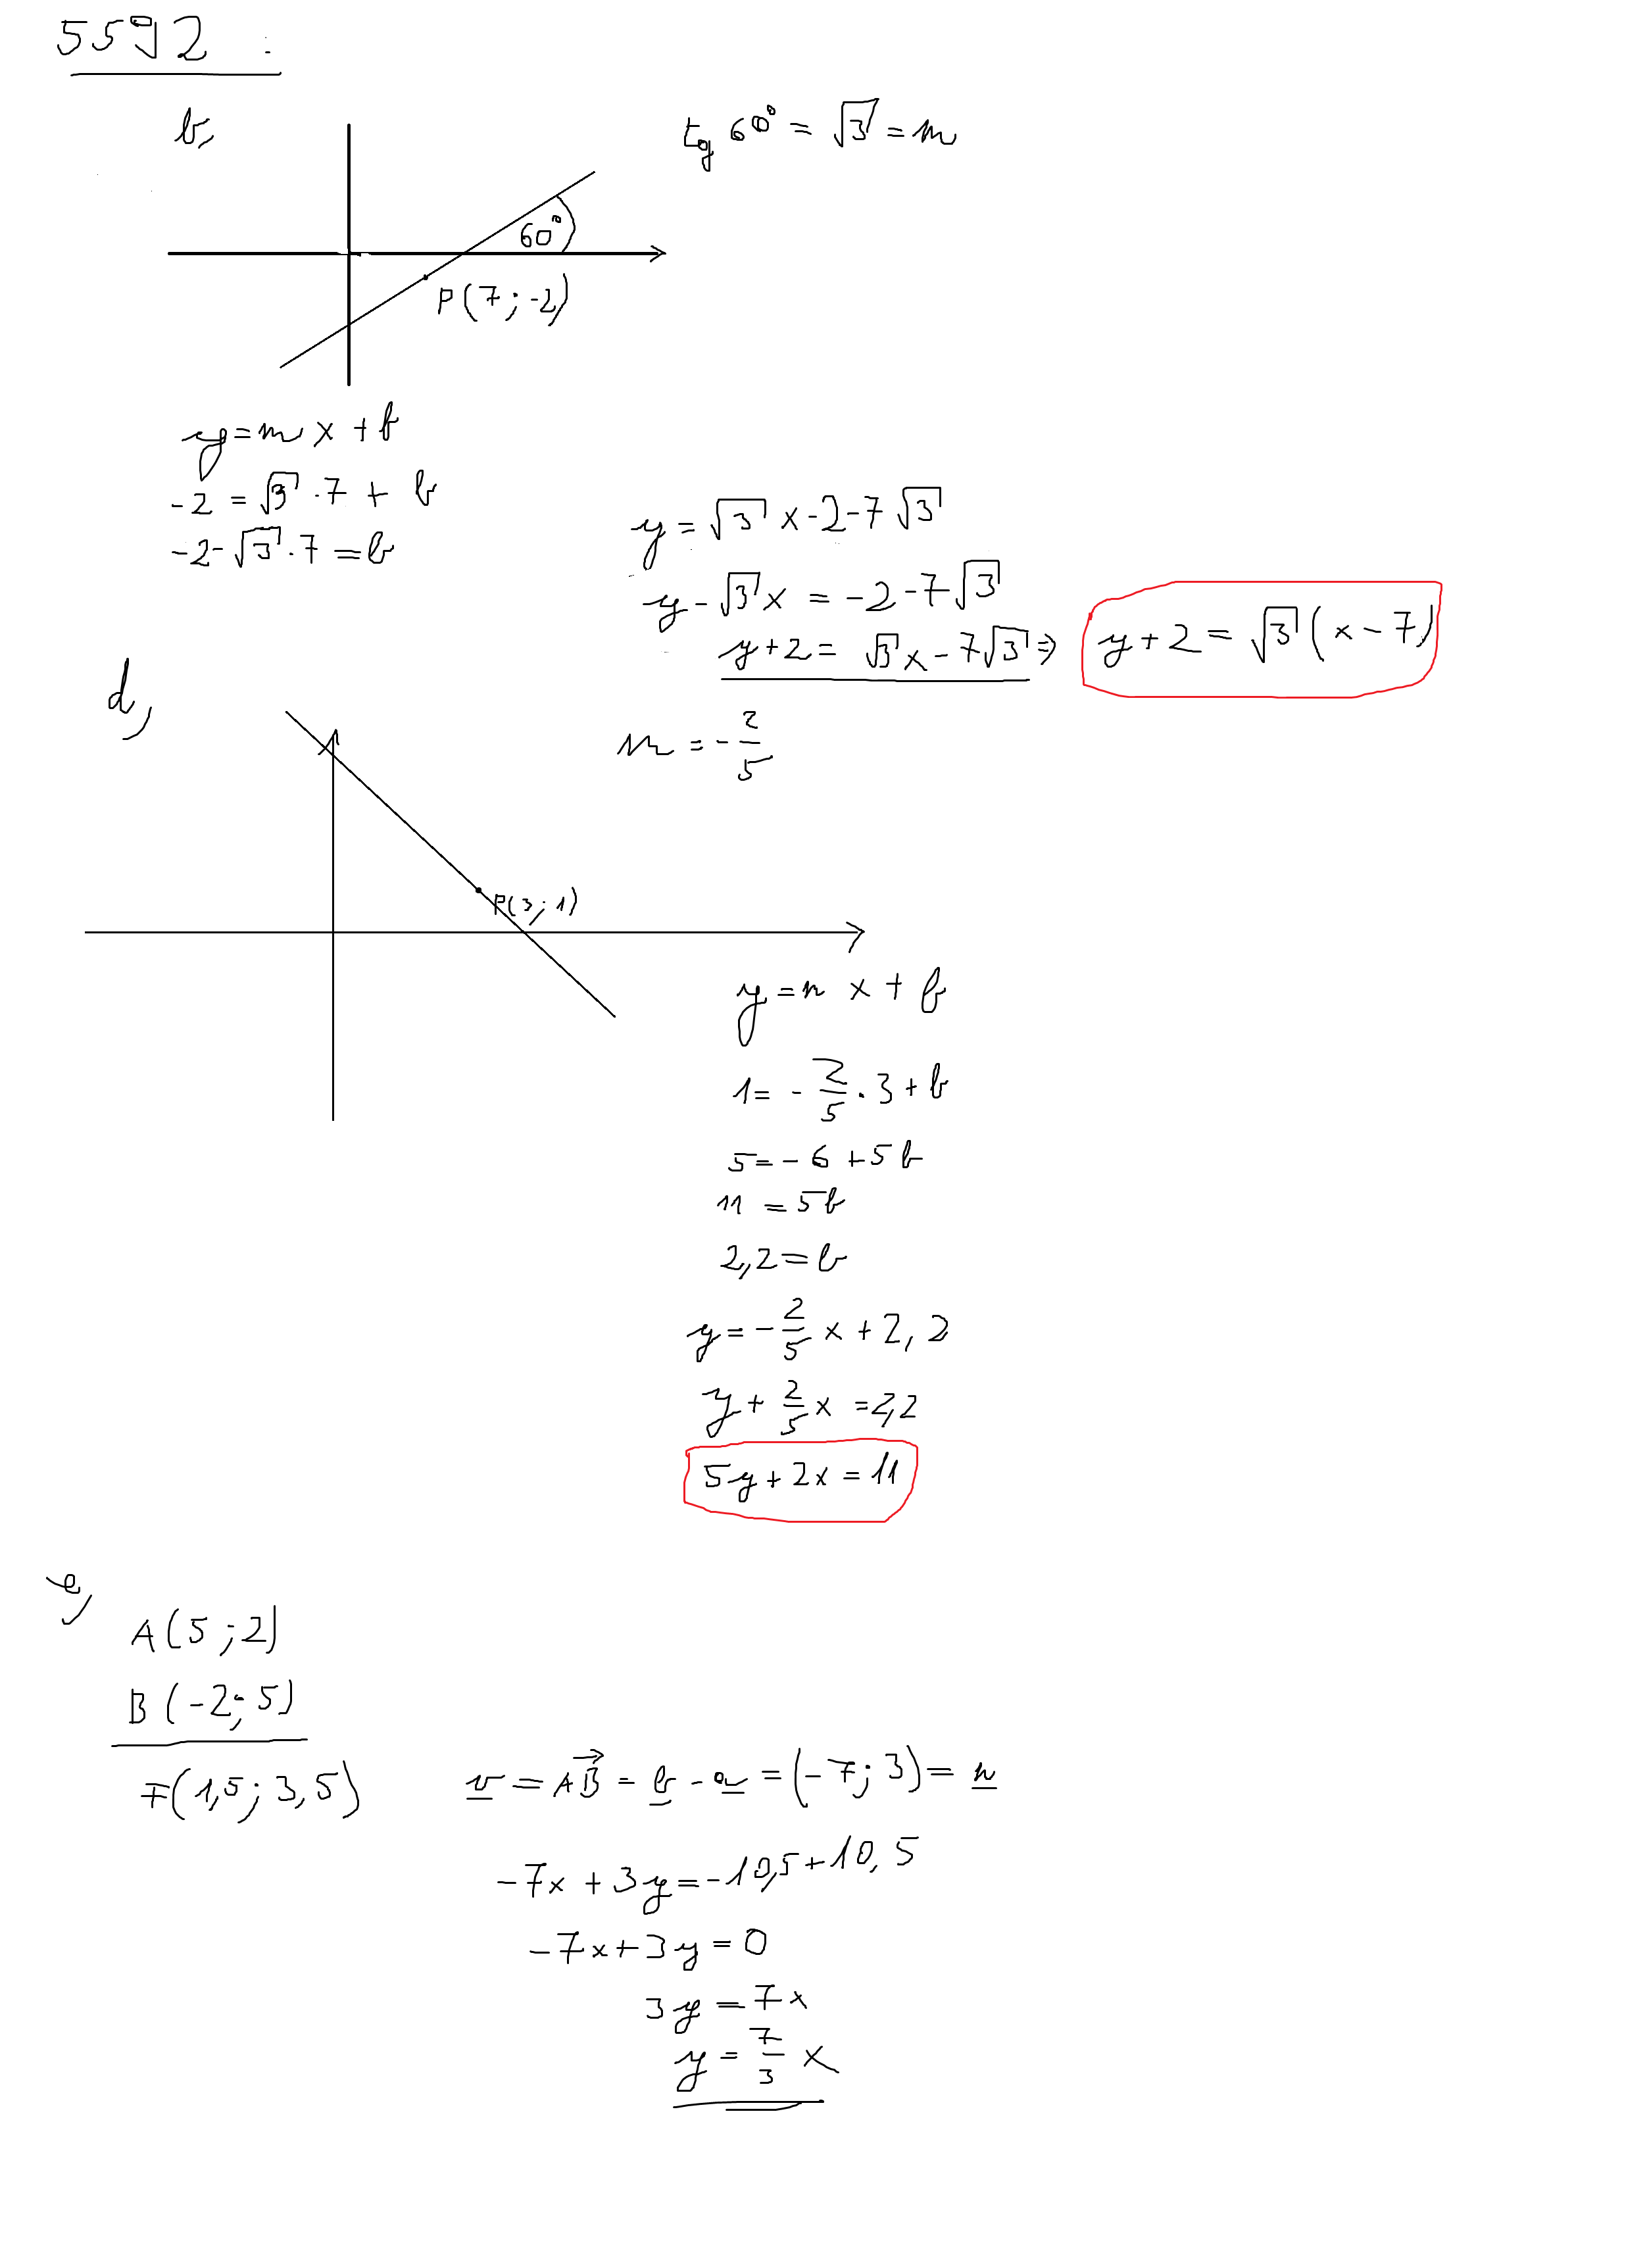 5592 :
b,
tg 60° = √3 = m
60°
P(7 ; -2)
y = m x + b
-2 = √3 · 7 + b
-2 - √3 · 7 = b
y = √3 x - 2 - 7 √3
y - √3 x = -2 - 7√3
y + 2 = √3 x - 7√3 ⇒ y + 2 = √3 (x - 7)
d,
m = - 2/5
P(3 ; 1)
y = m x + b
1 = - 2/5 · 3 + b
5 = - 6 + 5 b
11 = 5b
2,2 = b
y = - 2/5 x + 2,2
y + 2/5 x = 2,2
5y + 2x = 11
e,
A(5 ; 2)
B(-2 ; 5)
F(1,5 ; 3,5)
v = AB = b - a = (-7 ; 3) = n
-7x + 3y = -10,5 + 10,5
-7x + 3y = 0
3y = 7x
y = 7/3 x